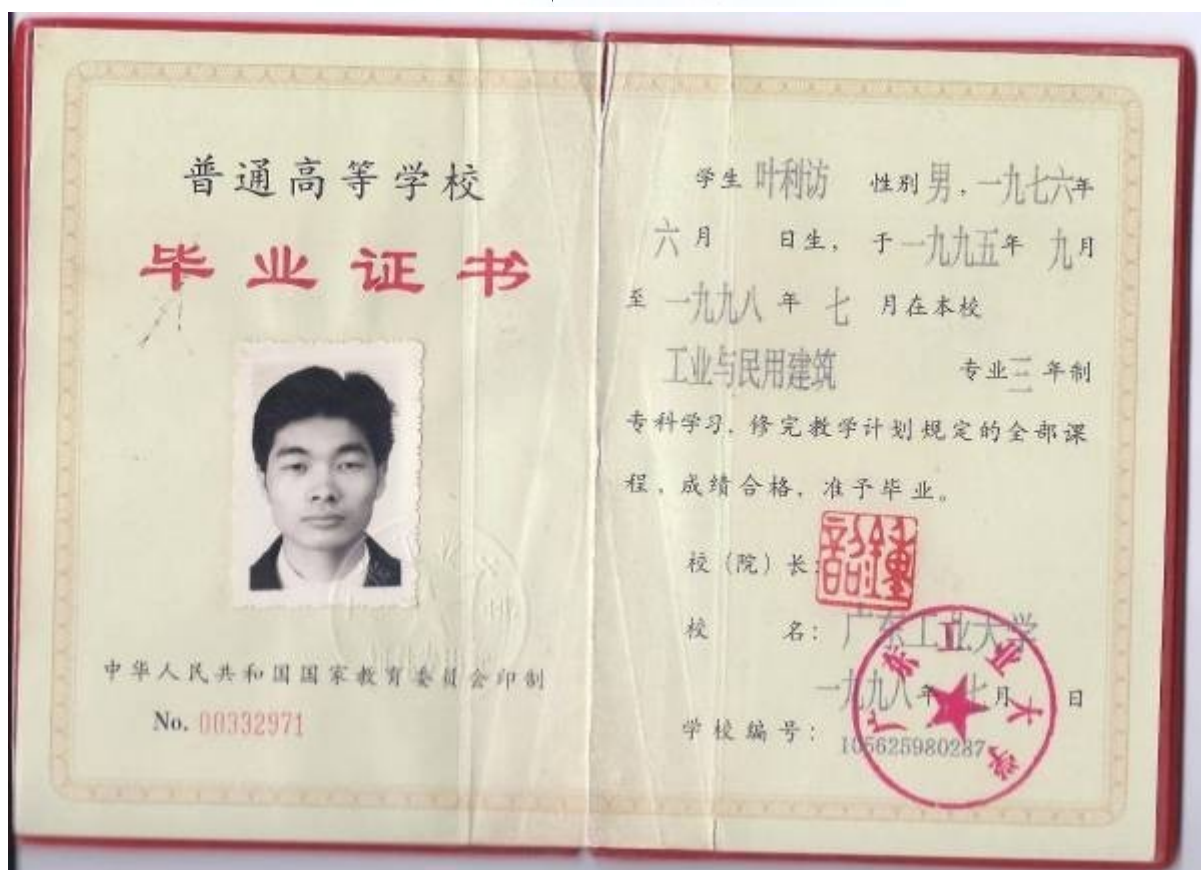 普通高等学校
毕业证书
中华人民共和国国家教育委员会印制
No. 00332971
学生 叶利访 性别 男，一九七六年
六月 日生，于一九九五年 九月
至 一九九八 年 七 月在本校
工业与民用建筑 专业 三 年制
专科学习，修完教学计划规定的全部课
程，成绩合格，准予毕业。
校（院）长：
校 名：广东工业大学
一九九八年 七月 日
学校编号：105625980287
广东工业大学